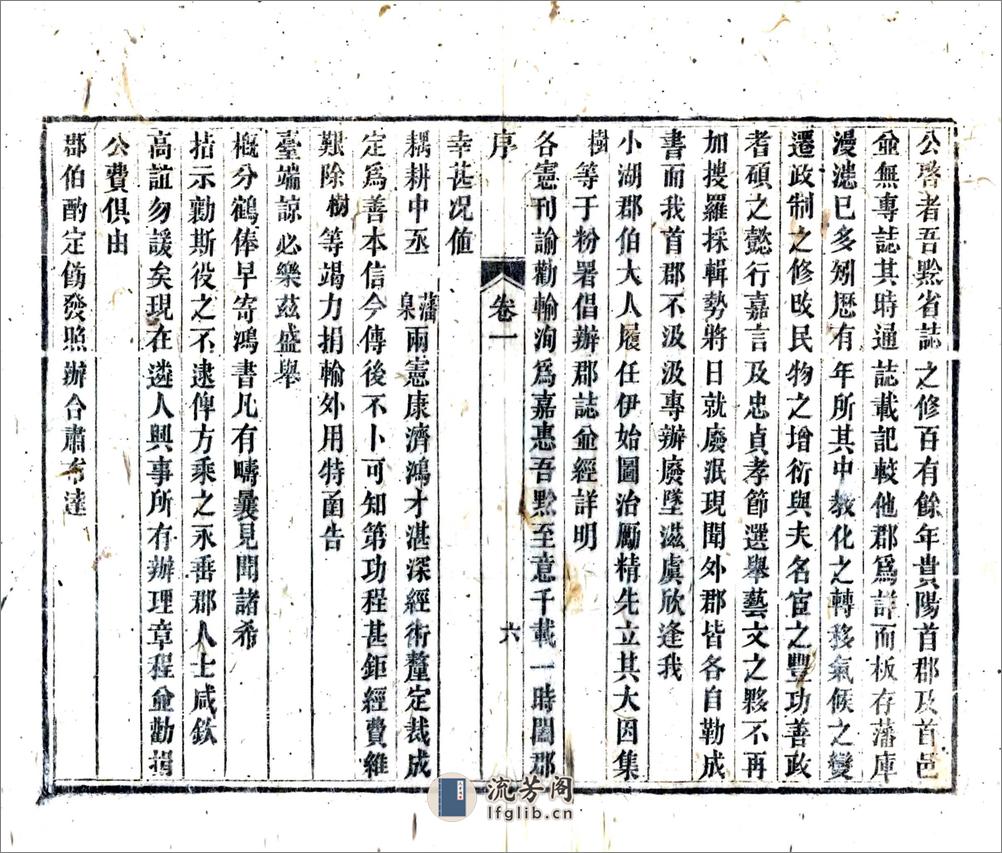 公啓者吾黔省誌之修百有餘年貴陽首郡及首邑
並無專誌其時通誌載記較他郡爲詳而板存藩庫
漫漶已多矧歷有年所其中教化之轉移氣候之變
遷政制之修改民物之增衍與夫名宦之豐功善政
耆碩之懿行嘉言及忠貞孝節選舉藝文之夥不再
加搜羅採輯勢將日就廢泯現聞外郡皆各自勒成
書而我首郡不汲汲專辦廢墜滋虞欣逢我
小湖郡伯大人履任伊始圖治勵精先立其大因集
樹等于粉署倡辦郡誌並經詳明
各憲刊諭勸輸洵爲嘉惠吾黔至意千載一時闔郡
序 卷一 六
幸甚况値
耦耕中丞藩臬兩憲康濟鴻才湛深經術釐定裁成
定爲善本信今傳後不卜可知第功程甚鉅經費維
艱除樹等竭力捐輸外用特函告
臺端諒必樂玆盛舉
概分鶴俸早寄鴻書凡有疇曩見聞諸希
拮示勷斯役之不逮俾方乘之永垂郡人士咸欽
高誼勿諼矣現在遴人興事所有辦理章程並勸捐
公費俱由
郡伯酌定飭發照辦合肅布達
流芳阁
lfglib.cn